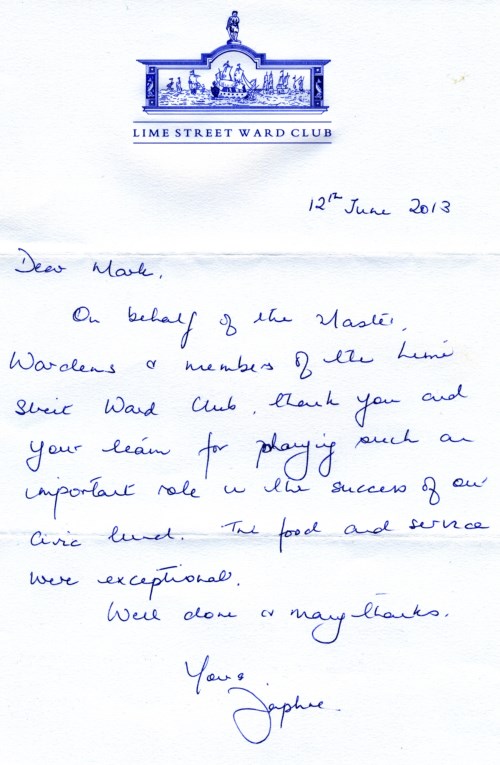 LIME STREET WARD CLUB
12th June 2013
Dear Mark,
On behalf of the Master,
Wardens & members of the Lime
Street Ward Club, thank you and
your team for playing such an
important role in the success of our
Civic lunch. The food and service
were exceptional.
Well done & many thanks.
Yours
Daphne